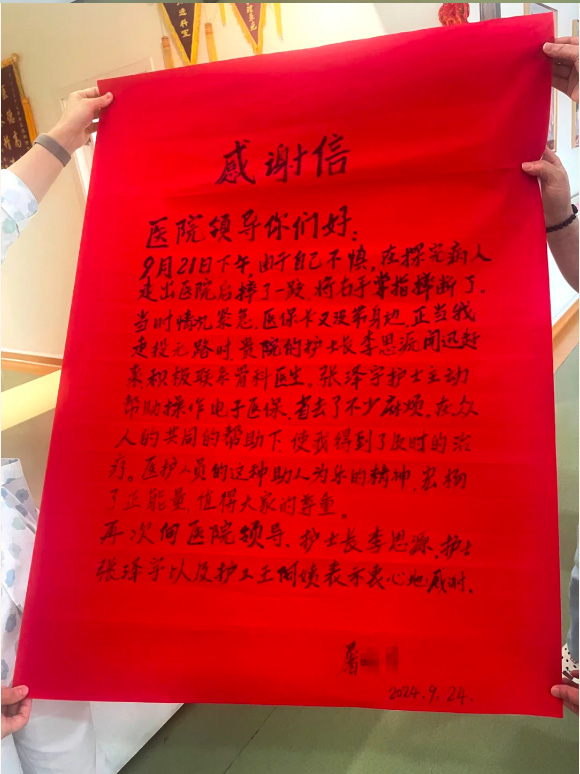 感谢信
医院领导你们好：
9月21日下午，由于自己不慎，在探完病人
走出医院后摔了一跤，将右手掌指摔断了，
当时情况紧急，医保卡又没带身边，正当我
走投无路时贵院的护士长李思源闻迅赶
来积极联系骨科医生。张泽宇护士主动
帮助操作电子医保，省去了不少麻烦。在众
人的共同的帮助下，使我得到了及时的治
疗。医护人员的这种助人为乐的精神，宏杨
了正能量，值得大家的尊重。
再次向医院领导、护士长李思源、护士
张泽宇以及护工王阿姨表示衷心地感谢。
2024.9.24.